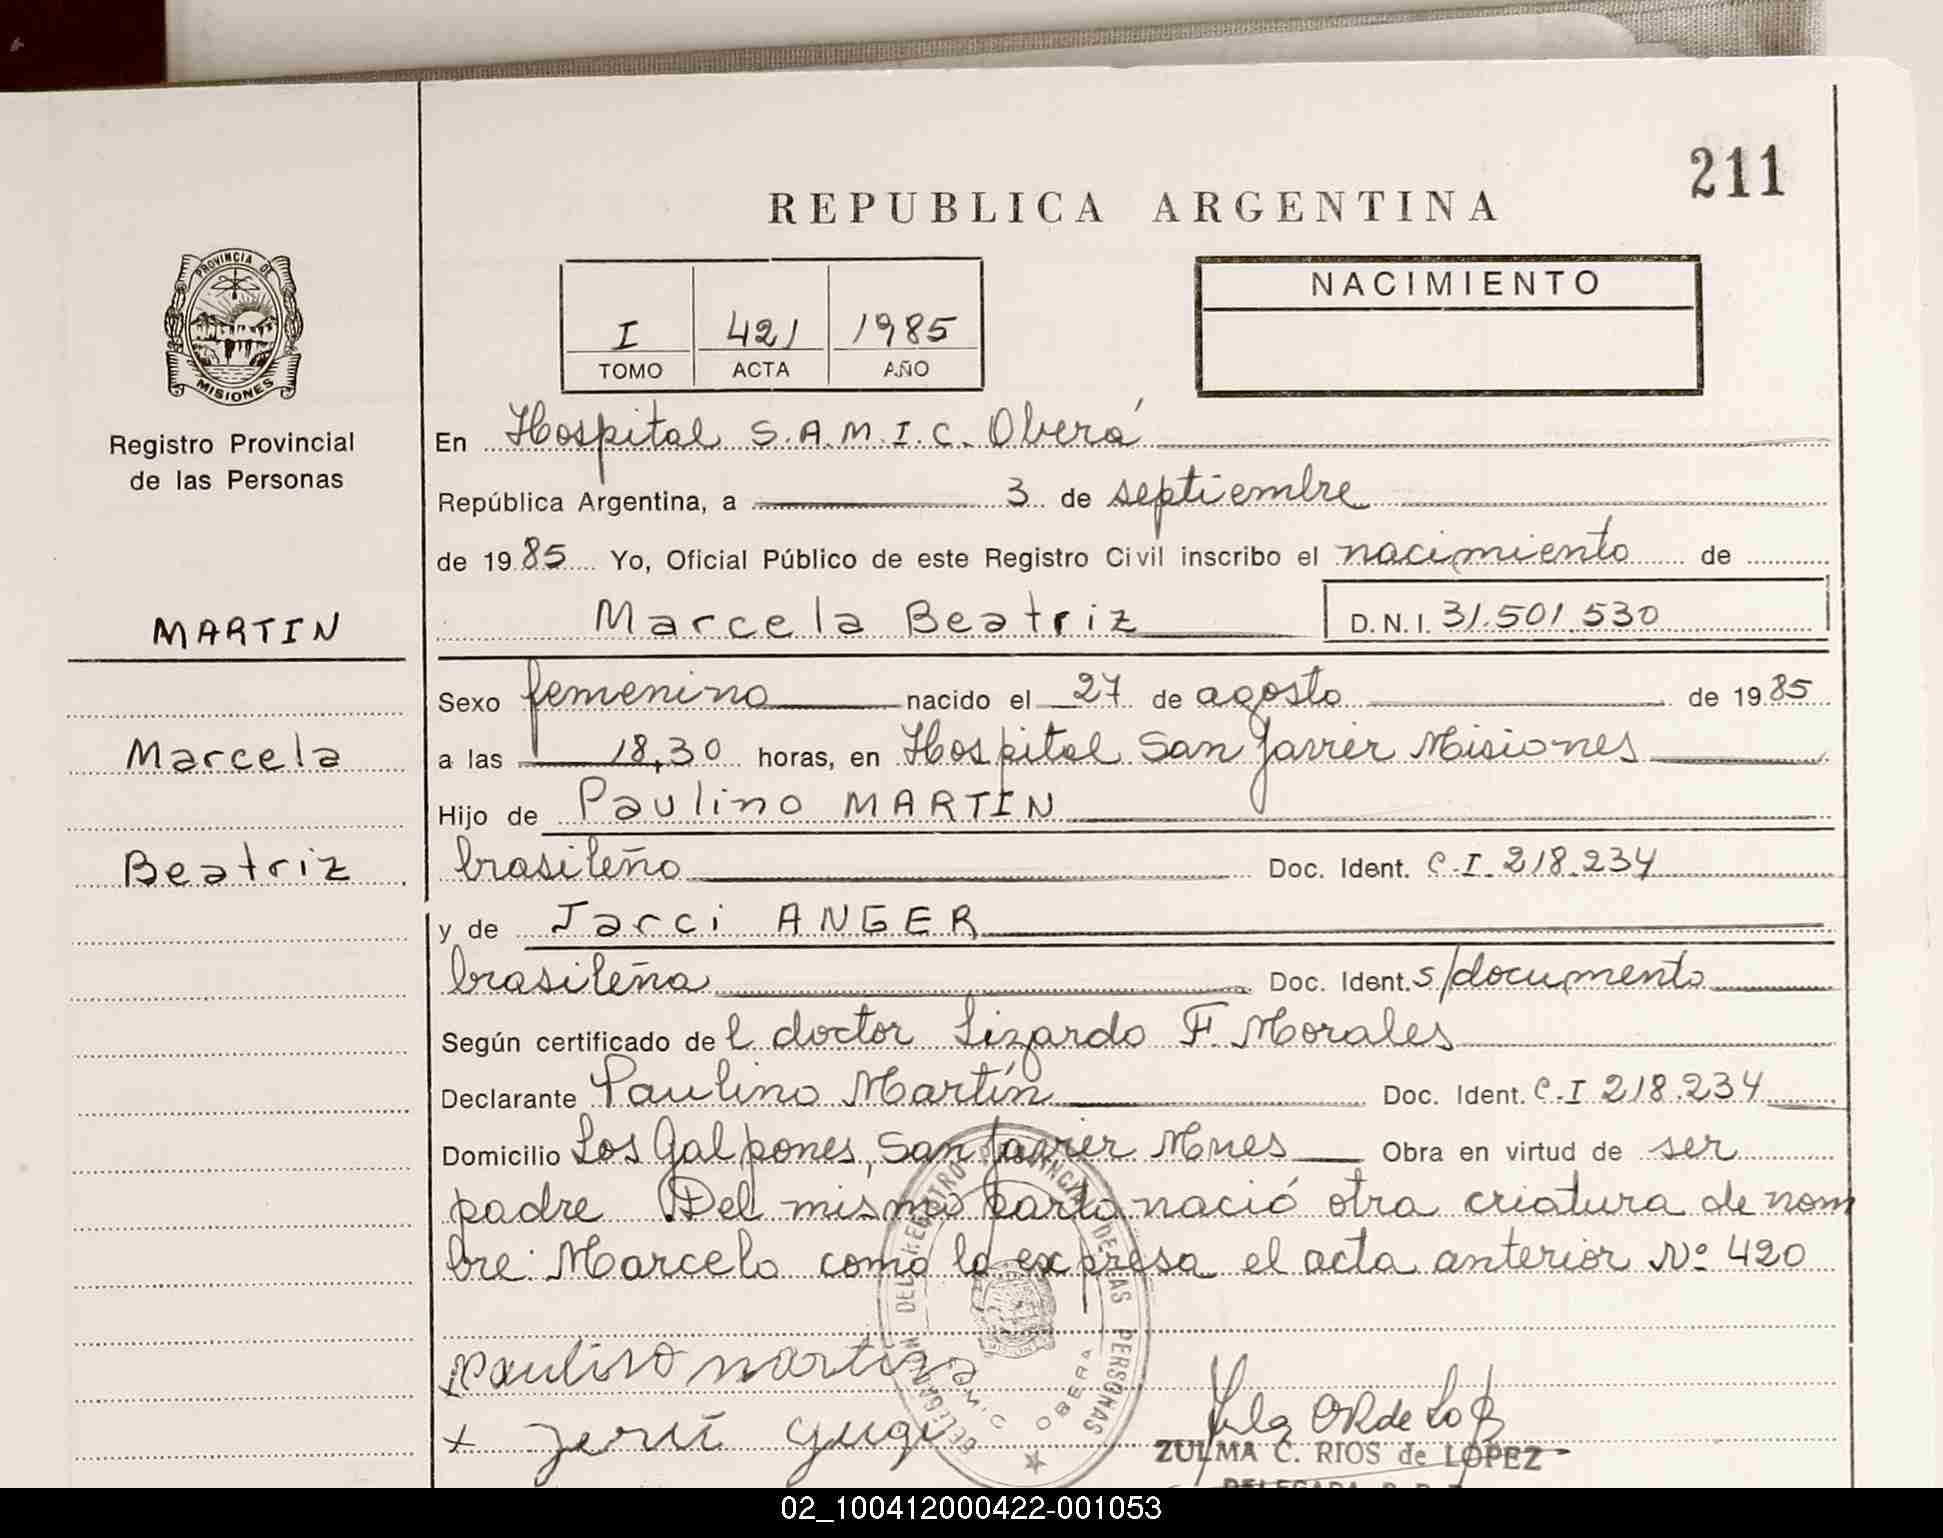 211
REPUBLICA ARGENTINA
PROVINCIA DE
MISIONES
Registro Provincial
de las Personas
MARTIN
Marcela
Beatriz
I 421 1985
TOMO ACTA AÑO
NACIMIENTO
En Hospital S.A.M.I.C. Oberá
República Argentina, a 3 de septiembre
de 1985 Yo, Oficial Público de este Registro Civil inscribo el nacimiento de
Marcela Beatriz D.N.I. 31.501.530
Sexo femenino nacido el 27 de agosto de 1985
a las 18,30 horas, en Hospital San Javier Misiones
Hijo de Paulino MARTIN
brasileño Doc. Ident. C.I. 218.234
y de Jarci ANGER
brasileña Doc. Ident. s/documento
Según certificado del doctor Lizardo F. Morales
Declarante Paulino Martín Doc. Ident. C.I 218.234
Domicilio Los Galpones, San Javier Mnes Obra en virtud de ser
padre Del mismo parto nació otra criatura de nom
bre: Marcelo como lo expresa el acta anterior Nº 420
Paulino Martin
DELEGACION DEL REGISTRO PROVINCIAL DE LAS PERSONAS
OBERA
ZULMA C. RIOS de LOPEZ
02_100412000422-001053